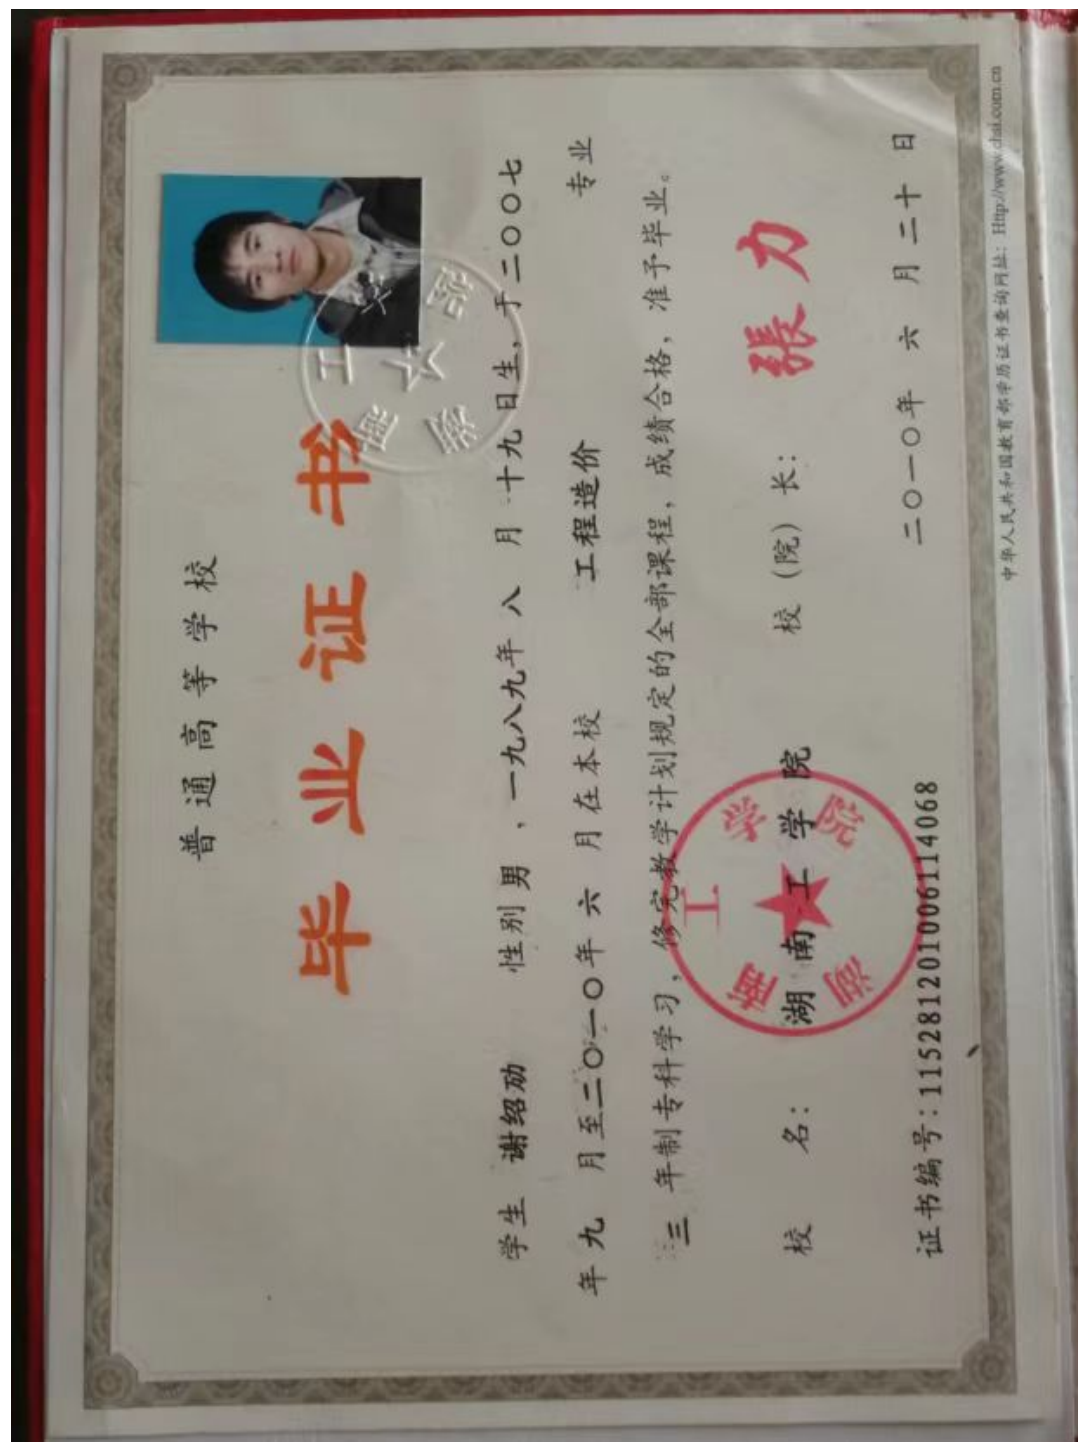 普通高等学校
毕业证书
学生 谢绍劢 性别 男 ，一九八九年 八 月 十九 日生，于二〇〇七
年 九 月至二〇一〇年 六 月在本校 工程造价 专业
三 年制专科学习，修完教学计划规定的全部课程，成绩合格，准予毕业。
校 名： 湖南工学院 校（院）长： 張力
湖南工学院
证书编号：115281201006114068 二〇一〇年 六 月 二十 日
中华人民共和国教育部学历证书查询网址：Http://www.chsi.com.cn